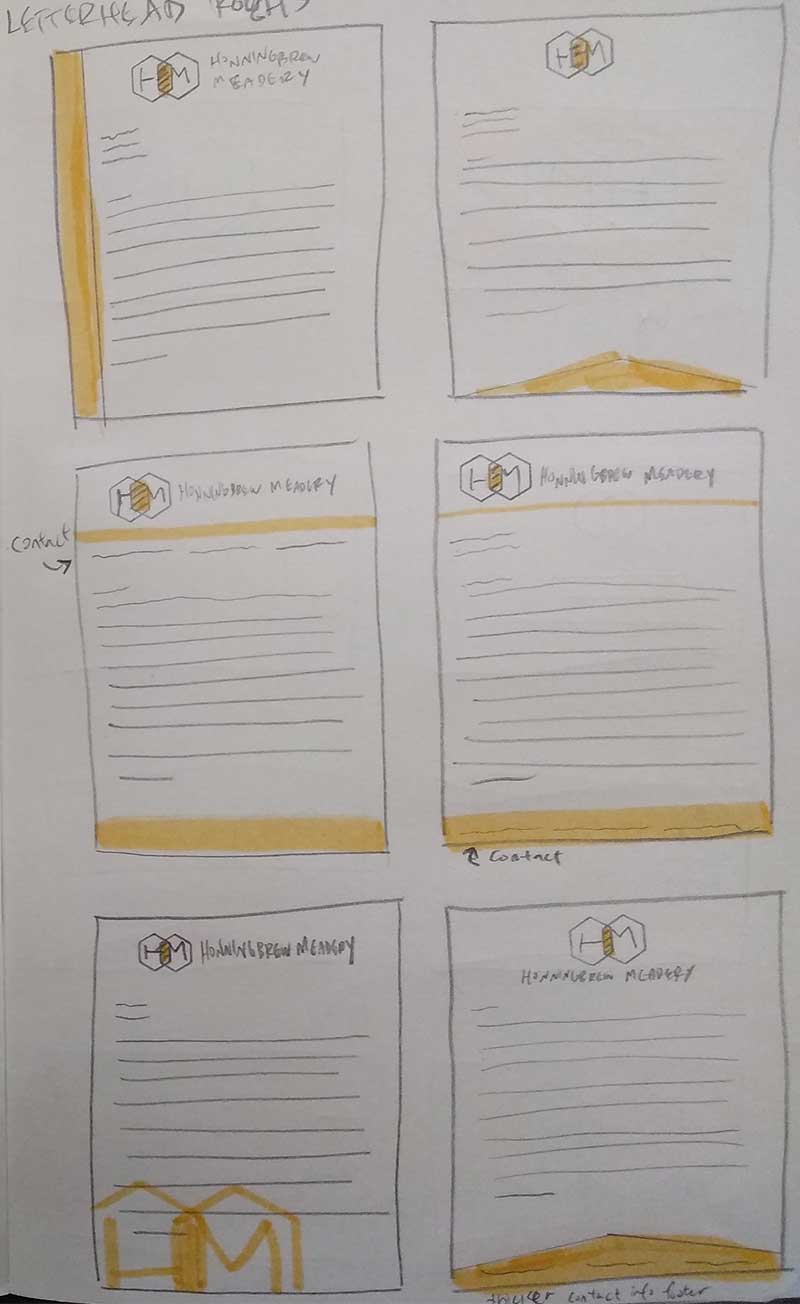 LETTERHEAD ROUGHS
HM HONNINGBREW
MEADERY
HM
HM HONNINGBREW MEADERY
Contact
HM HONNINGBREW MEADERY
Contact
HM HONNINGBREW MEADERY
HM
HM
HONNINGBREW MEADERY
thicker contact info footer